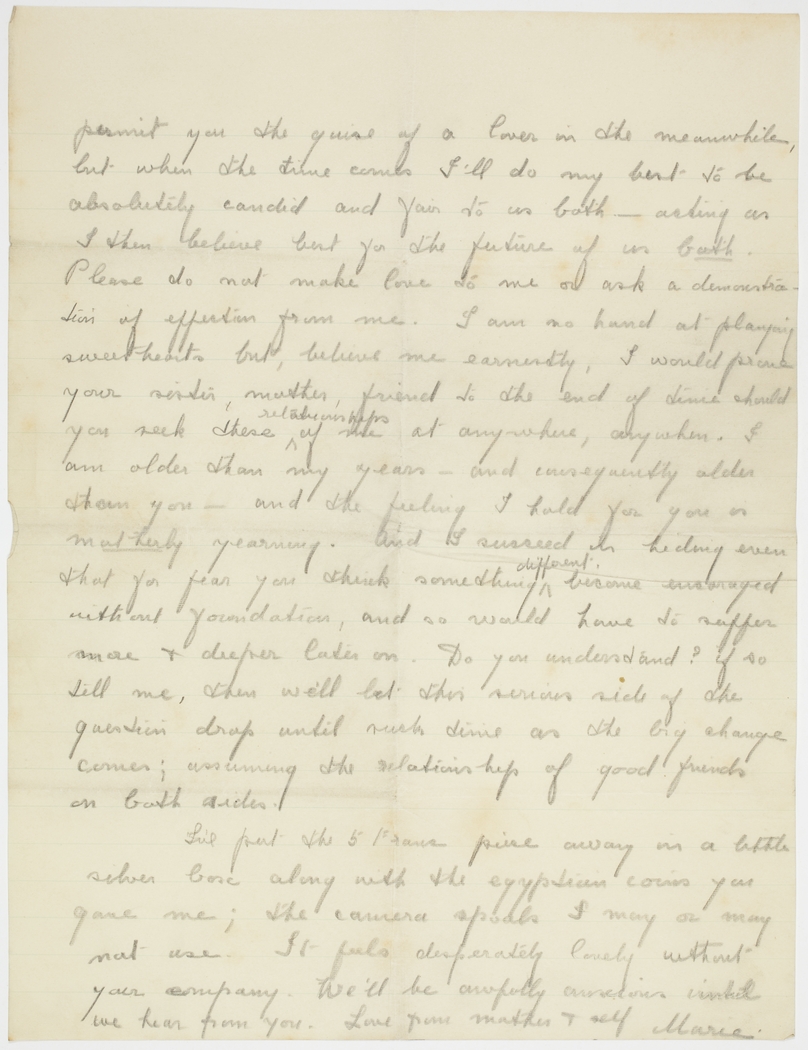 permit you the guise of a lover in the meanwhile,
but when the time comes I'll do my best to be
absolutely candid and fair to us both — acting as
I then believe best for the future of us both.
Please do not make love to me or ask a demonstra-
tion of affection from me. I am no hand at playing
sweethearts but, believe me earnestly, I would prove
your sister, mother, friend to the end of time should
relationships
you seek these of me at anywhere, anywhen. I
am older than my years — and consequently older
than you — and the feeling I hold for you is
motherly yearning. And I succeed in hiding even
different.
that for fear you think something become encouraged
without foundation, and so would have to suffer
more & deeper later on. Do you understand? if so
tell me, then we'll let this serious side of the
question drop until such time as the big change
comes; assuming the relationship of good friends
on both sides.
I've put the 5 Franc piece away in a little
silver box along with the egyptian coins you
gave me; the camera spools I may or may
not use. It feels desperately lonely without
your company. We'll be awfully anxious until
we hear from you. Love from mother & self Marie.